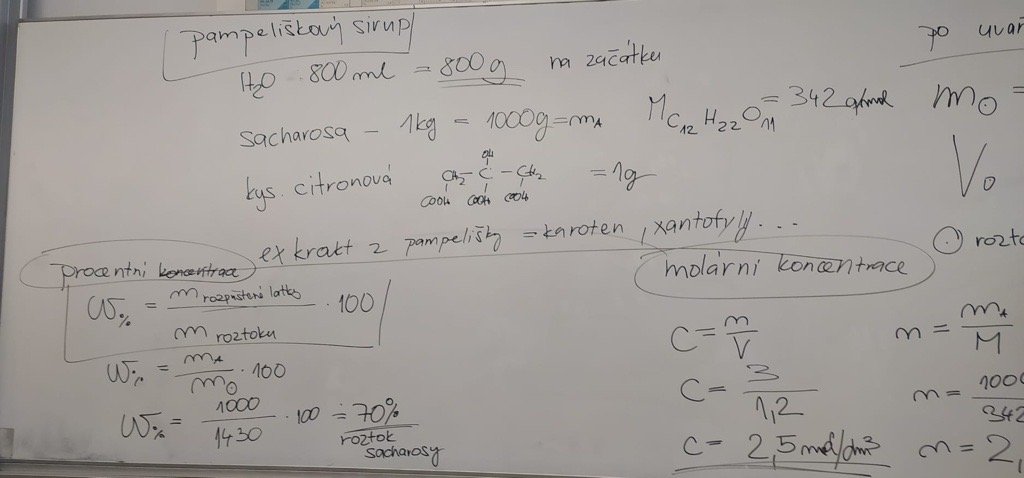 pampeliškový sirup
H₂O · 800 ml = 800g na začátku
sacharosa – 1kg = 1000g = mA
M C₁₂H₂₂O₁₁ = 342 g/mol
kys. citronová CH₂ – C – CH₂ = 1g
OH
COOH COOH COOH
exkrakt z pampelišky = karoten, xantofyly...
po uvař
m⊙ =
V₀
⊙ rozto
procentní koncentrace
W% = m rozpuštěné látky / m roztoku · 100
W% = mA / m⊙ · 100
W% = 1000 / 1430 · 100 ≐ 70%
roztok
sacharosy
molární koncentrace
c = n / V
c = 3 / 1,2
c = 2,5 mol/dm³
n = mA / M
n = 1000 / 342
n = 2,